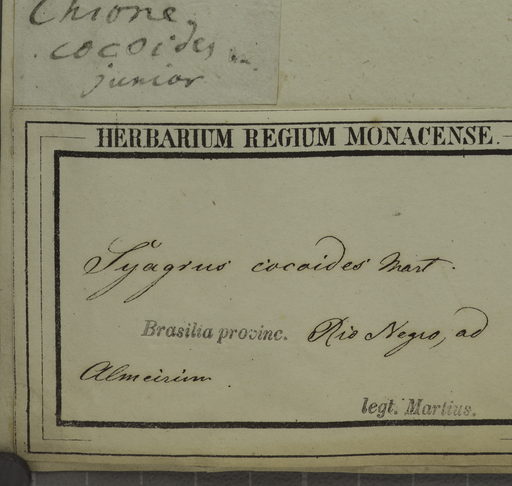 Chione
cocoides
junior
HERBARIUM REGIUM MONACENSE.
Syagrus cocoides Mart.
Brasilia provinc. Rio Negro, ad
Almeirim.
legt. Martius.